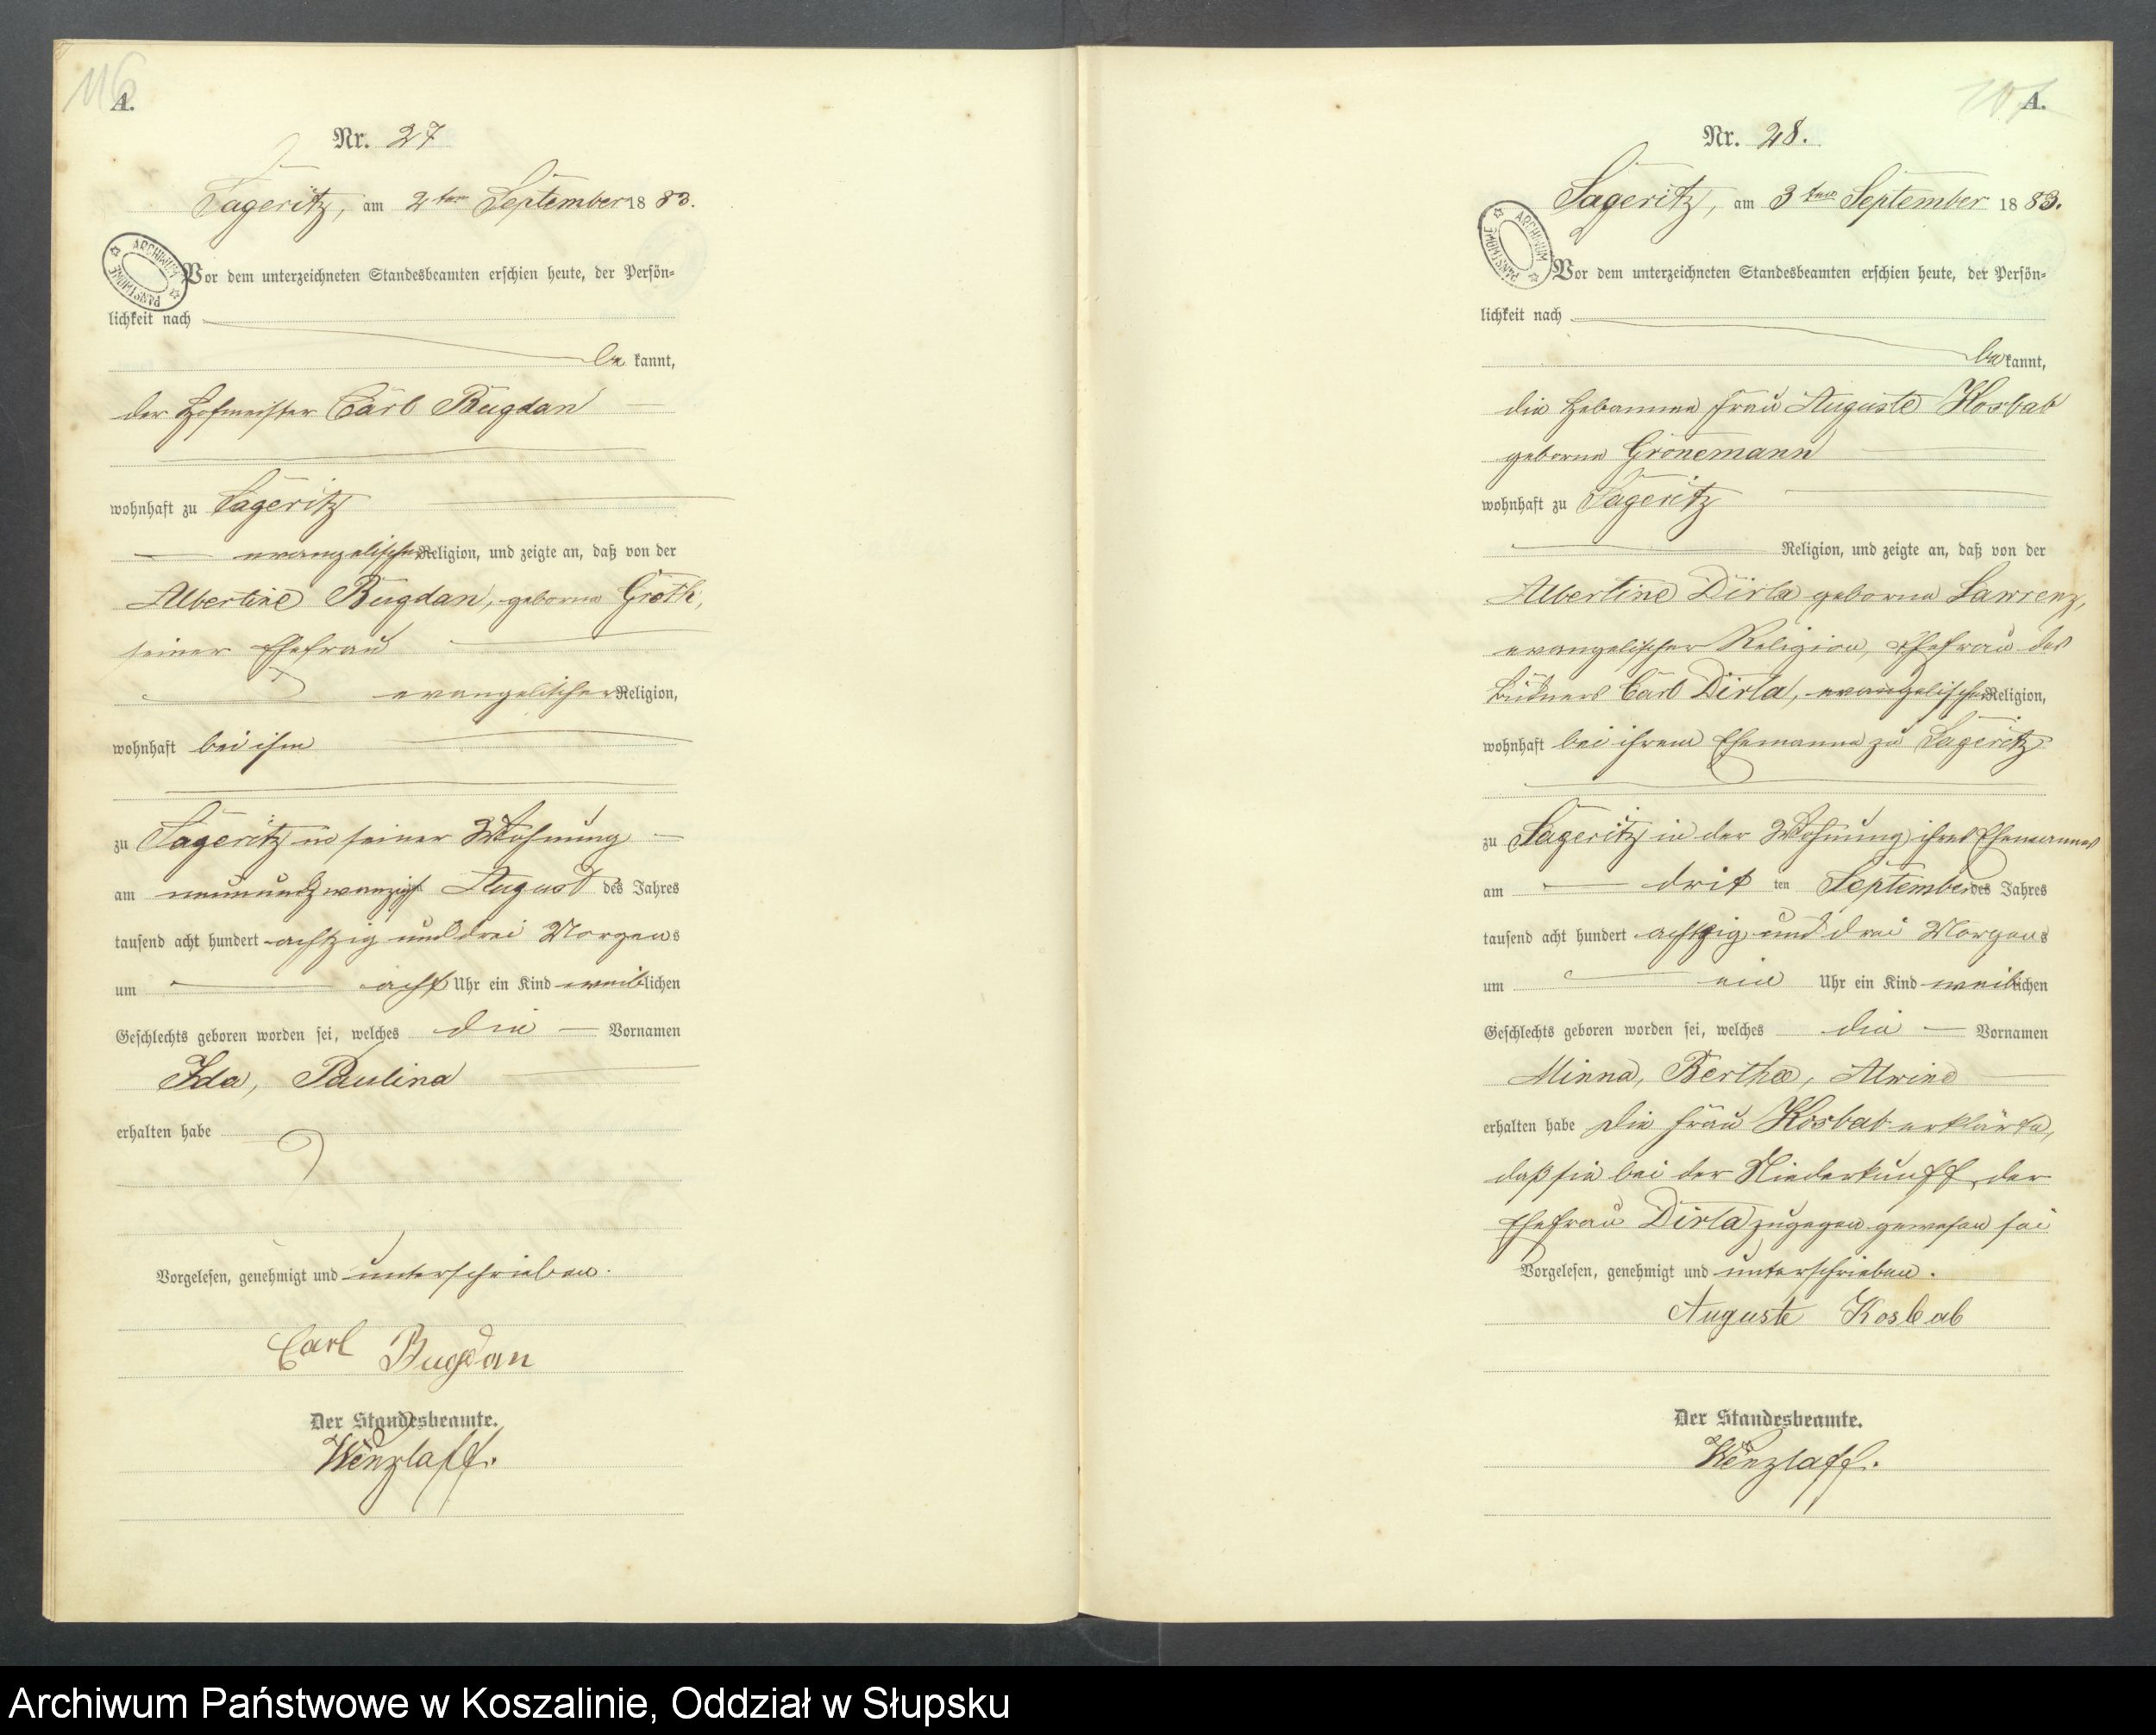 116
A.
Nr. 27
Sageritz, am 2ten September 1883.
ARCHIWUM PAŃSTWOWE
Vor dem unterzeichneten Standesbeamten erschien heute, der Persön=
lichkeit nach
be kannt,
der Hofmeister Carl Bugdan
wohnhaft zu Sageritz
evangelischer Religion, und zeigte an, daß von der
Albertine Bugdan, geborne Groth,
seiner Ehefrau
evangelischer Religion,
wohnhaft bei ihm
zu Sageritz in seiner Wohnung
am neunundzwanzigsten August des Jahres
tausend acht hundert achtzig und drei Morgens
um acht Uhr ein Kind weiblichen
Geschlechts geboren worden sei, welches die Vornamen
Ida, Paulina
erhalten habe
Vorgelesen, genehmigt und unterschrieben.
Carl Bugdan
Der Standesbeamte.
Wenzlaff.
107
A.
Nr. 28.
Sageritz, am 3ten September 1883.
ARCHIWUM PAŃSTWOWE
Vor dem unterzeichneten Standesbeamten erschien heute, der Persön=
lichkeit nach
be kannt,
die Hebamme Frau Auguste Kosbab
geborne Gronemann
wohnhaft zu Sageritz
Religion, und zeigte an, daß von der
Albertine Dirla geborne Lawrenz,
evangelischer Religion, Ehefrau des
Büdners Carl Dirla, evangelischer Religion,
wohnhaft bei ihrem Ehemanne zu Sageritz
zu Sageritz in der Wohnung ihres Ehemannes
am dritten September des Jahres
tausend acht hundert achtzig und drei Morgens
um ein Uhr ein Kind weiblichen
Geschlechts geboren worden sei, welches die Vornamen
Minna, Bertha, Alwine
erhalten habe Die Frau Kosbab erklärte,
daß sie bei der Niederkunft der
Ehefrau Dirla zugegen gewesen sei
Vorgelesen, genehmigt und unterschrieben.
Auguste Kosbab
Der Standesbeamte.
Wenzlaff.
Archiwum Państwowe w Koszalinie, Oddział w Słupsku